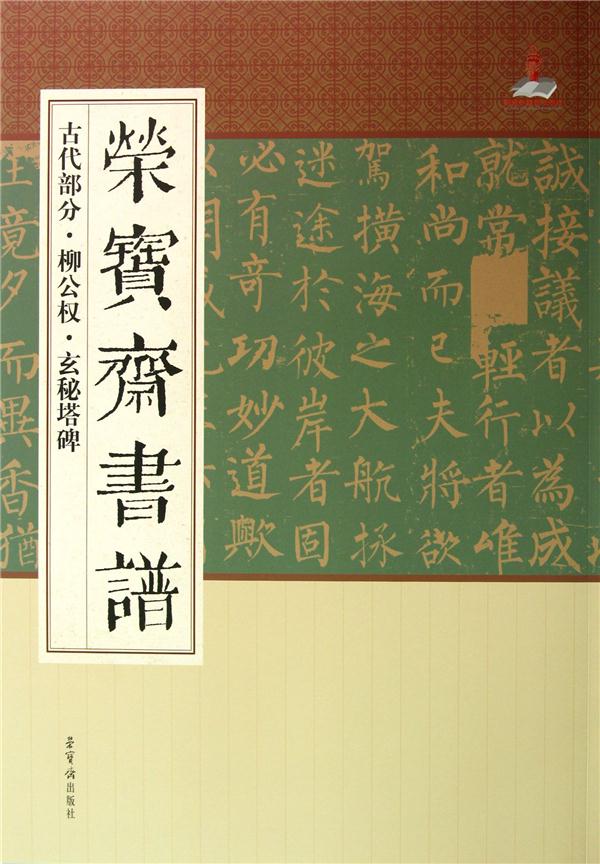 榮寶齋書譜
古代部分·柳公权·玄秘塔碑
誠接議者以為成
就常輕行者唯
和尚而已夫將欲
駕橫海之大航拯
迷途於彼岸者固
必有奇功妙道歟
竟夕而異香猶
荣宝斋出版社